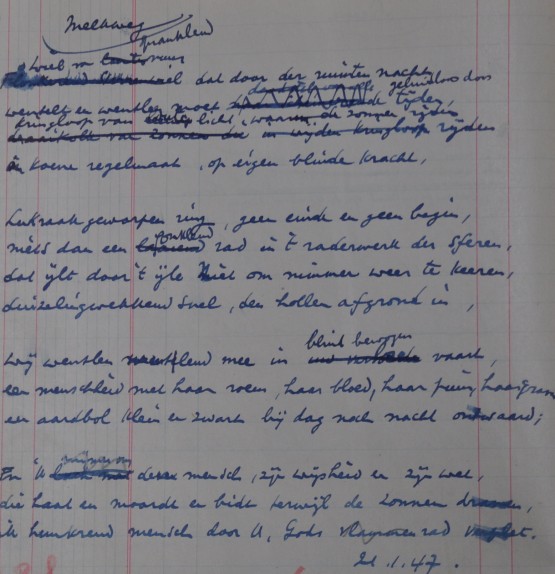 Melkweg
fonklend
O wiel van vuur
dat door der ruimten nacht
geluidloos door
wentelt en wentlen moet de tijden,
kringloop van licht, waarin de zonnen rijden
draaikolk van zonnen die in wijden kringloop rijden
in koene regelmaat, op eigen blinde kracht,
Lukraak geworpen ring, geen einde en geen begin,
fonklend
niets dan een rad in 't raderwerk der sferen,
dat ijlt door 't ijle Niet om nimmer weer te keeren,
duizelingwekkend snel, den hollen afgrond in,
blind bewogen
wij wentlen mee in vaart,
een menschheid met haar roem, haar bloed, haar puin, haar gram
een aardbol klein en zwart bij dag noch nacht ontwaard;
En ik deze mensch, zijn wijsheid en zijn wet,
die haat en moordt en bidt terwijl de zonnen
ik hunkrend mensch door U, Gods vlammenrad
21.1.47.